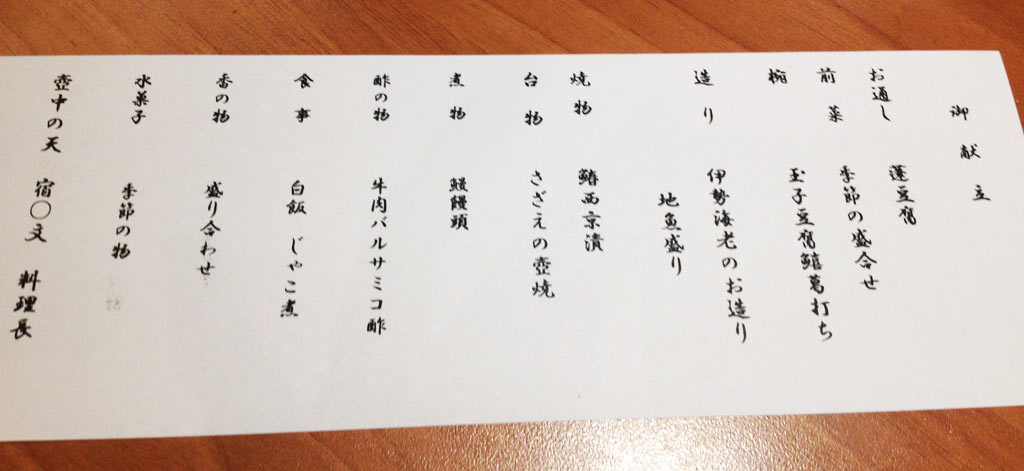 御献立
お通し 蓬豆腐
前菜 季節の盛合せ
椀 玉子豆腐鱚葛打ち
造り 伊勢海老のお造り
地魚盛り
焼物 鰆西京漬
台物 さざえの壺焼
煮物 鰻饅頭
酢の物 牛肉バルサミコ酢
食事 白飯 じゃこ煮
香の物 盛り合わせ
水菓子 季節の物
壺中の天 宿〇文 料理長